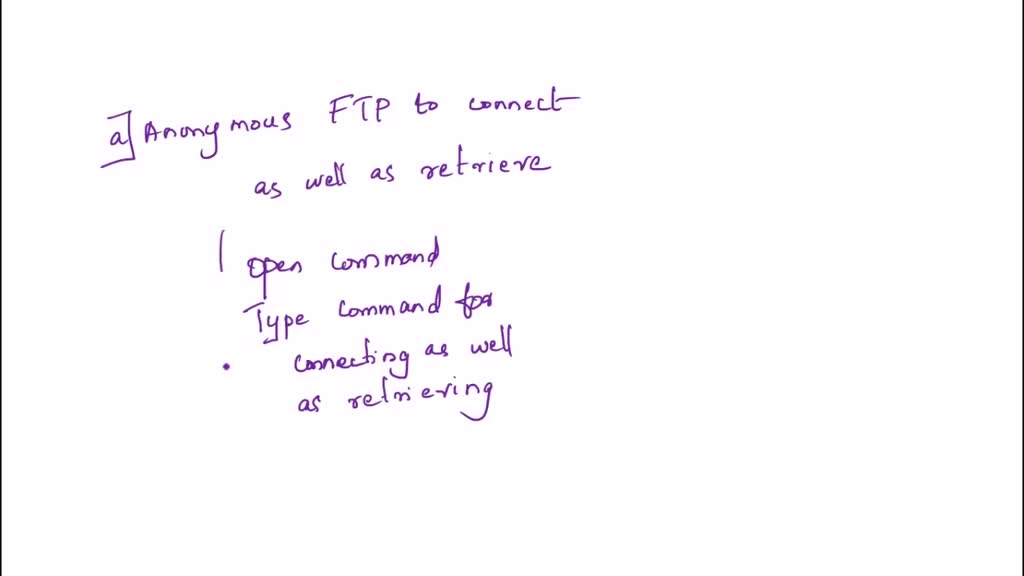 a] Anonymous FTP to connect
as well as retrieve
open command
Type command for
connecting as well
as retrieving